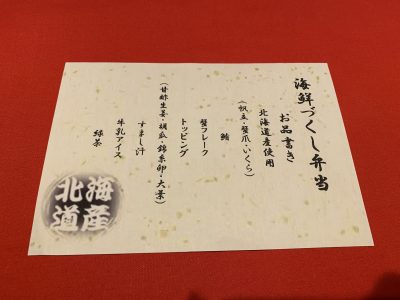 海鮮づくし弁当
お品書き
北海道産使用
(帆立・蟹爪・いくら)
鮪
蟹フレーク
トッピング
(甘酢生姜・胡瓜・錦糸卵・大葉)
すまし汁
牛乳アイス
緑茶
北海道産